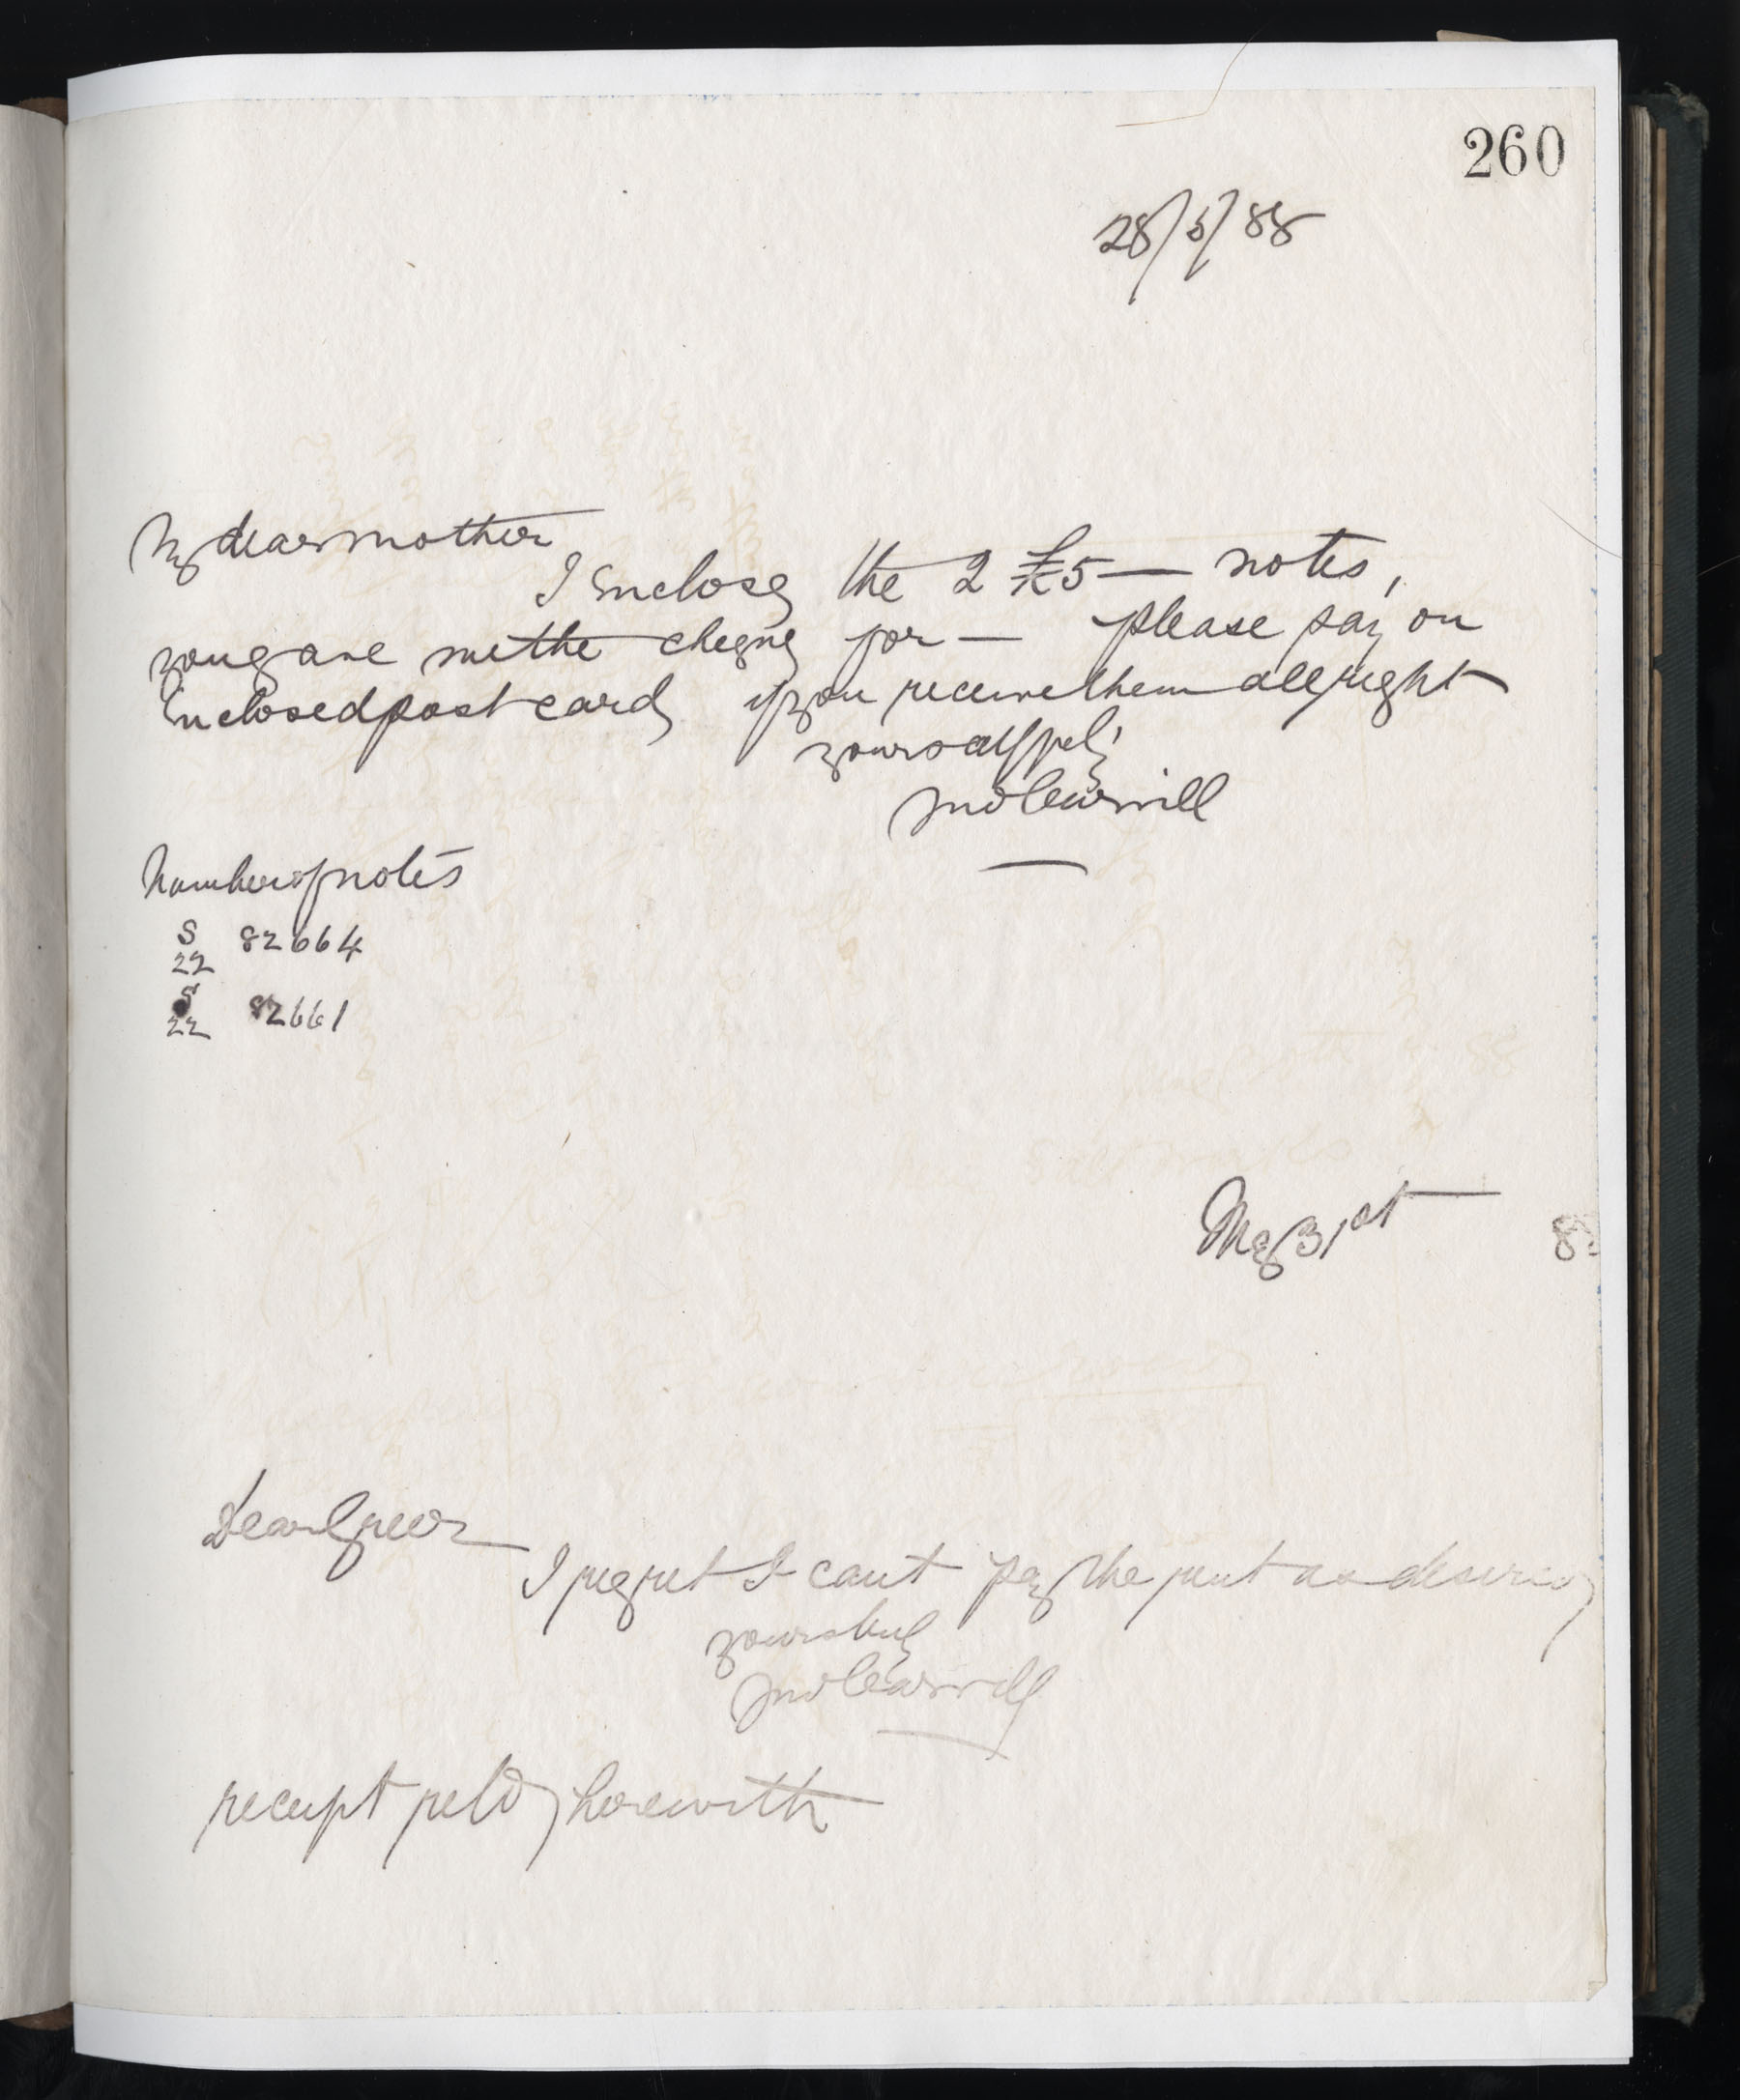 260
28/5/88
My dear mother
I enclose the 2 £5 — notes,
you gave me the cheque for — please say on
enclosed post card if you receive them all right
yours affly
Number of notes
S 82664
22
S 82661
22
May 31st 8
Dear
I regret I cant pay the rent as desired
yours truly
receipt retd herewith